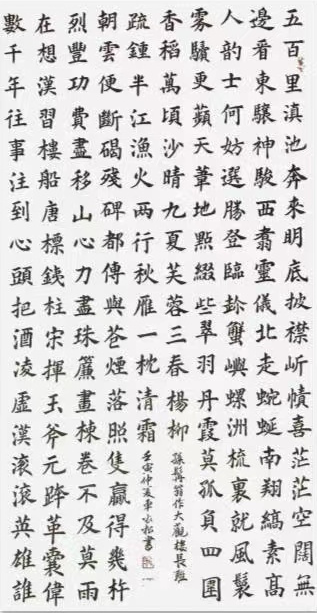 五百里滇池奔来明底披襟岍幘喜茫茫空闊無
邊看東驤神駿西翥靈儀北走蜿蜒南翔縞素高
人韵士何妨選勝登臨趁蟹嶼螺洲梳裹就風鬟
霧鬢更蘋天葦地點綴些翠羽丹霞莫孤負四圍
香稻萬頃沙晴九夏芙蓉三春楊柳
數千年往事注到心頭把酒凌虛漢滾滾英雄誰
在想漢習樓船唐標鉄柱宋揮玉斧元跨革囊偉
烈豐功費盡移山心力盡珠簾畫棟卷不及莫雨
朝雲便斷碣殘碑都傳與苍煙落照隻贏得幾杵
疏鍾半江漁火兩行秋雁一枕清霜
孫髯翁作大觀樓長聯
壬寅仲夏松書